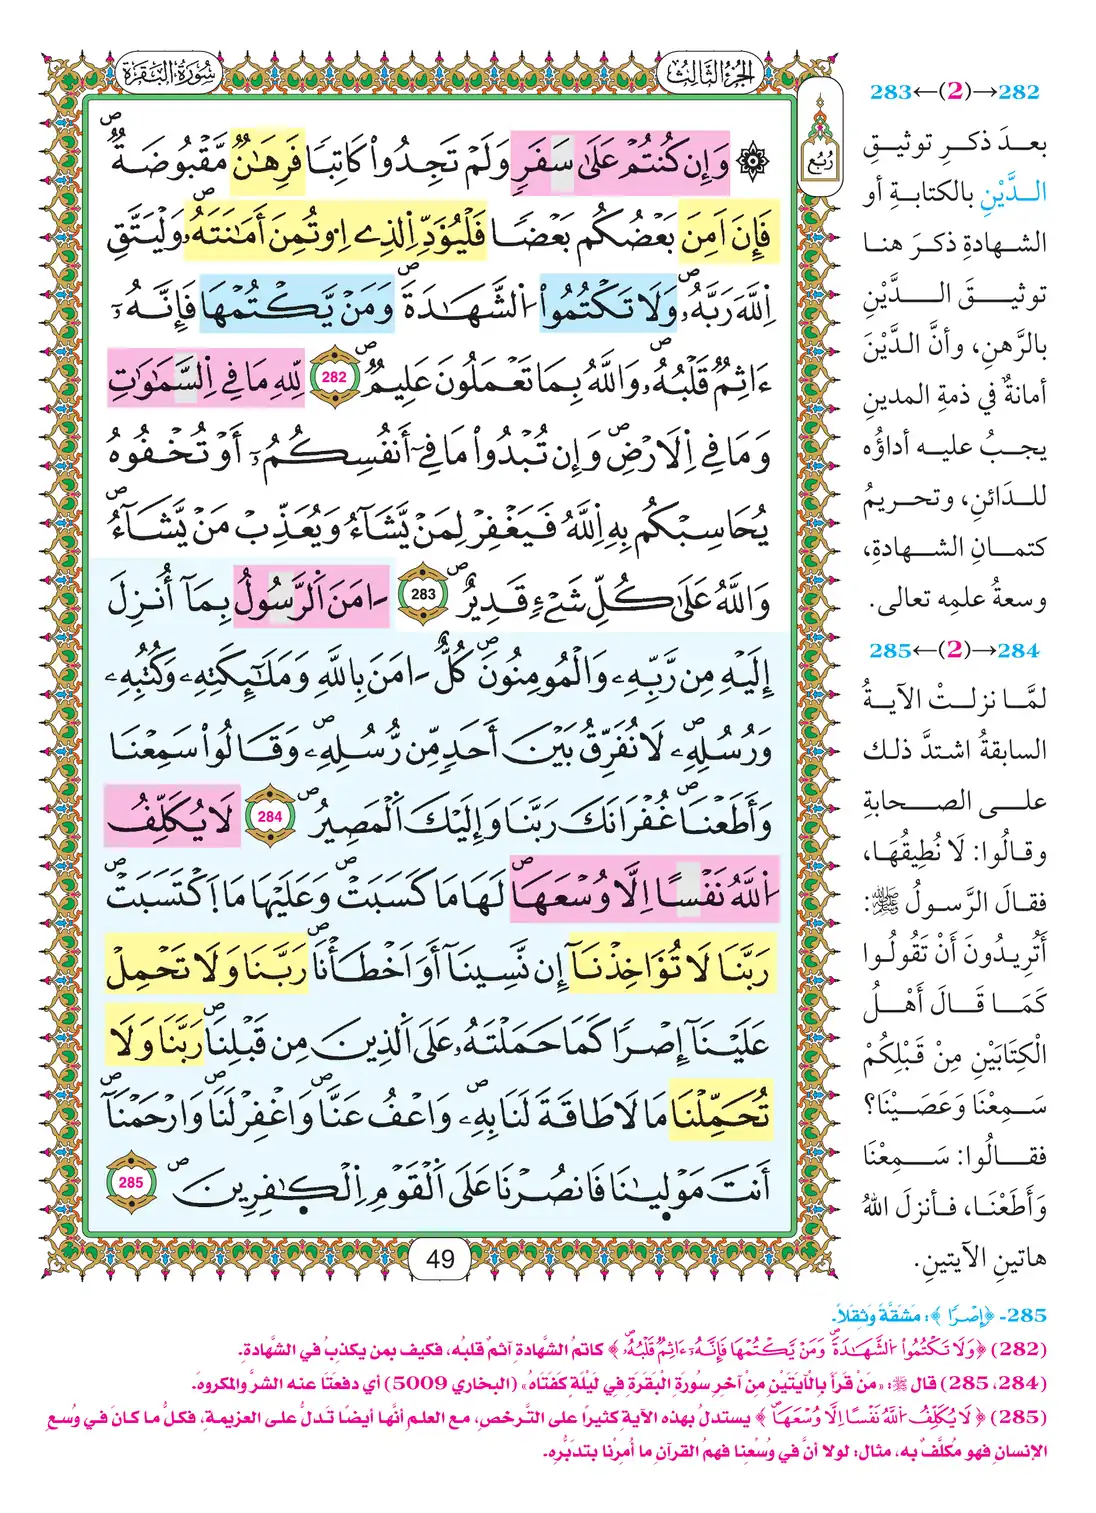 سُورَةُ الْبَقَرَة
الجُزْءُ الثَّالِث
رُبُع
۞ وَإِن كُنتُمْ عَلَىٰ سَفَرٖ وَلَمْ تَجِدُوا۟ كَاتِبٗا فَرِهَٰنٞ مَّقْبُوضَةٞۖ
فَإِنَ اَمِنَ بَعْضُكُم بَعْضٗا فَلْيُؤَدِّ اِ۬لذِے اِ۟وتُمِنَ أَمَٰنَتَهُۥۖ وَلْيَتَّقِ
اِ۬للَّهَ رَبَّهُۥۖ وَلَا تَكْتُمُوا۟ اُ۬لشَّهَٰدَةَۖ وَمَنْ يَّكْتُمْهَا فَإِنَّهُۥٓ
ءَاثِمٞ قَلْبُهُۥۖ وَاللَّهُ بِمَا تَعْمَلُونَ عَلِيمٞۖ 282 لِّلهِ مَا فِے اِ۬لسَّمَٰوَٰتِ
وَمَا فِے اِ۬لَارْضِۖ وَإِن تُبْدُوا۟ مَا فِےٓ أَنفُسِكُمُۥٓ أَوْ تُخْفُوهُ
يُحَاسِبْكُم بِهِ اِ۬للَّهُۖ فَيَغْفِرْ لِمَنْ يَّشَآءُ وَيُعَذِّبْ مَنْ يَّشَآءُۖ
وَاللَّهُ عَلَىٰ كُلِّ شَےْءٖ قَدِيرٌۖ 283 ءَامَنَ اَ۬لرَّسُولُ بِمَآ أُنزِلَ
إِلَيْهِ مِن رَّبِّهِۦ وَالْمُومِنُونَۖ كُلٌّ ءَامَنَ بِاللَّهِ وَمَلَٰٓئِكَتِهِۦ وَكُتُبِهِۦ
وَرُسُلِهِۦۖ لَا نُفَرِّقُ بَيْنَ أَحَدٖ مِّن رُّسُلِهِۦۖ وَقَالُوا۟ سَمِعْنَا
وَأَطَعْنَاۖ غُفْرَانَكَ رَبَّنَا وَإِلَيْكَ اَ۬لْمَصِيرُۖ 284 لَا يُكَلِّفُ
اُ۬للَّهُ نَفْسًا اِلَّا وُسْعَهَاۖ لَهَا مَا كَسَبَتْ وَعَلَيْهَا مَا اَ۪كْتَسَبَتْۖ
رَبَّنَا لَا تُؤَاخِذْنَآ إِن نَّسِينَآ أَوَ اَخْطَأْنَاۖ رَبَّنَا وَلَا تَحْمِلْ
عَلَيْنَآ إِصْرٗا كَمَا حَمَلْتَهُۥ عَلَى اَ۬لذِينَ مِن قَبْلِنَاۖ رَبَّنَا وَلَا
تُحَمِّلْنَا مَا لَا طَاقَةَ لَنَا بِهِۦۖ وَاعْفُ عَنَّاۖ وَاغْفِرْ لَنَاۖ وَارْحَمْنَآۖ
أَنتَ مَوْلَىٰنَا فَانصُرْنَا عَلَى اَ۬لْقَوْمِ اِ۬لْكَٰفِرِينَۖ 285
49
283←(2)→282
بعـدَ ذكـرِ توثيـقِ
الـدَّيْنِ بالكتابـةِ أو
الشـهادةِ ذكـرَ هنـا
توثيـقَ الـدَّيْنِ
بالرَّهنِ، وأنَّ الدَّيْنَ
أمانةٌ في ذمةِ المدينِ
يجـبُ عليـه أداؤُه
للـدَائنِ، وتحـريمُ
كتمـانِ الشـهادةِ،
وسعةُ علمِه تعالى.
285←(2)→284
لمَّـا نزلـتْ الآيـةُ
السابقةُ اشتدَّ ذلـك
علـى الصـحابةِ
وقـالُوا: لَا نُطِيقُهَـا،
فقـالَ الرَّسـولُ ﷺ:
أَتُرِيـدُونَ أَنْ تَقُولُـوا
كَمَـا قَـالَ أَهْـلُ
الْكِتَابَيْنِ مِنْ قَبْلِكُمْ
سَـمِعْنَا وَعَصَـيْنَا؟
فقـالُوا: سَـمِعْنَا
وَأَطَعْنَـا، فـأنزلَ اللهُ
هاتينِ الآيتينِ.
285- ﴿إِصْرًا﴾: مَشَقَّةً وَثِقَلاً.
(282) ﴿وَلَا تَكْتُمُوا۟ اُ۬لشَّهَٰدَةَۖ وَمَنْ يَّكْتُمْهَا فَإِنَّهُۥٓ ءَاثِمٞ قَلْبُهُۥۖ﴾ كاتمُ الشَّهادةِ آثمٌ قلبُه، فكيف بمن يكذبُ في الشَّهادةِ.
(284، 285) قال ﷺ: «مَنْ قَرَأَ بِالْآيَتَيْنِ مِنْ آخرِ سُورَةِ الْبَقَرَةِ فِي لَيْلَةٍ كَفَتَاهُ» (البخاري 5009) أي دفعتَا عنه الشرَّ والمكروهَ.
(285) ﴿لَا يُكَلِّفُ اُ۬للَّهُ نَفْسًا اِلَّا وُسْعَهَاۖ﴾ يستدلُ بهذه الآيةِ كثيرًا على التَّرخصِ، مع العلمِ أنَّها أيضًا تَدلُّ على العزيمةِ، فكلُّ ما كانَ في وُسعِ
الإنسانِ فهو مُكلَّفٌ به، مثال: لولا أنَّ في وُسْعِنا فهمُ القرآنِ ما أُمِرْنا بتدبُّرِه.